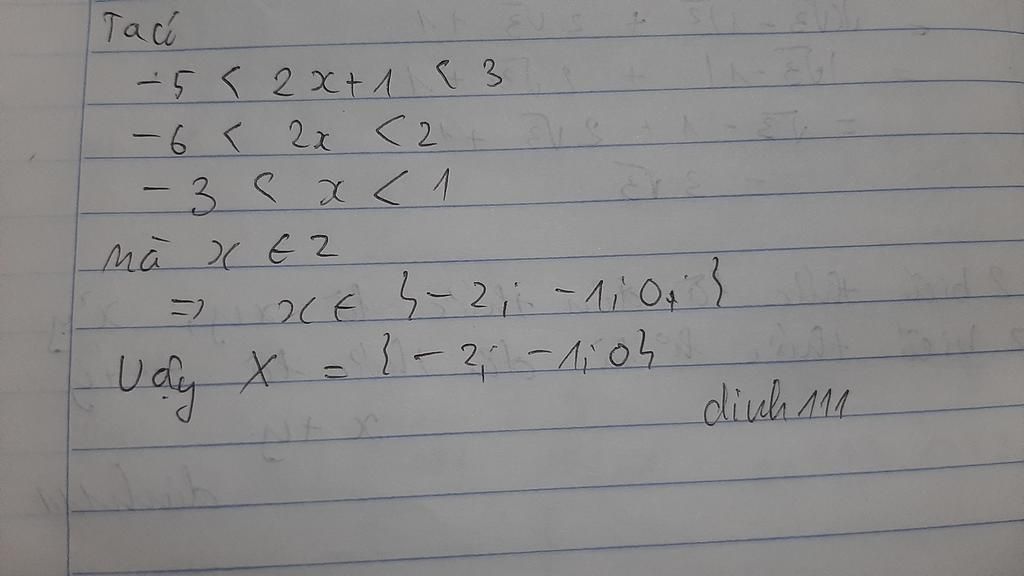 Ta có
-5 < 2x+1 < 3
-6 < 2x < 2
-3 < x < 1
mà x ∈ Z
=> x ∈ {-2; -1; 0; }
Vậy X = {-2; -1; 0}
dinh111